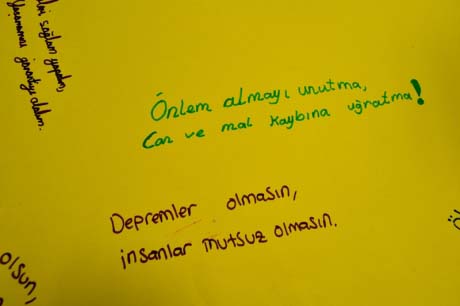 sağlam yapalım,
Yaşamımızı garantiye alalım.
Önlem almayı unutma,
Can ve mal kaybına uğratma!
Depremler olmasın,
insanlar mutsuz olmasın.
olsun,